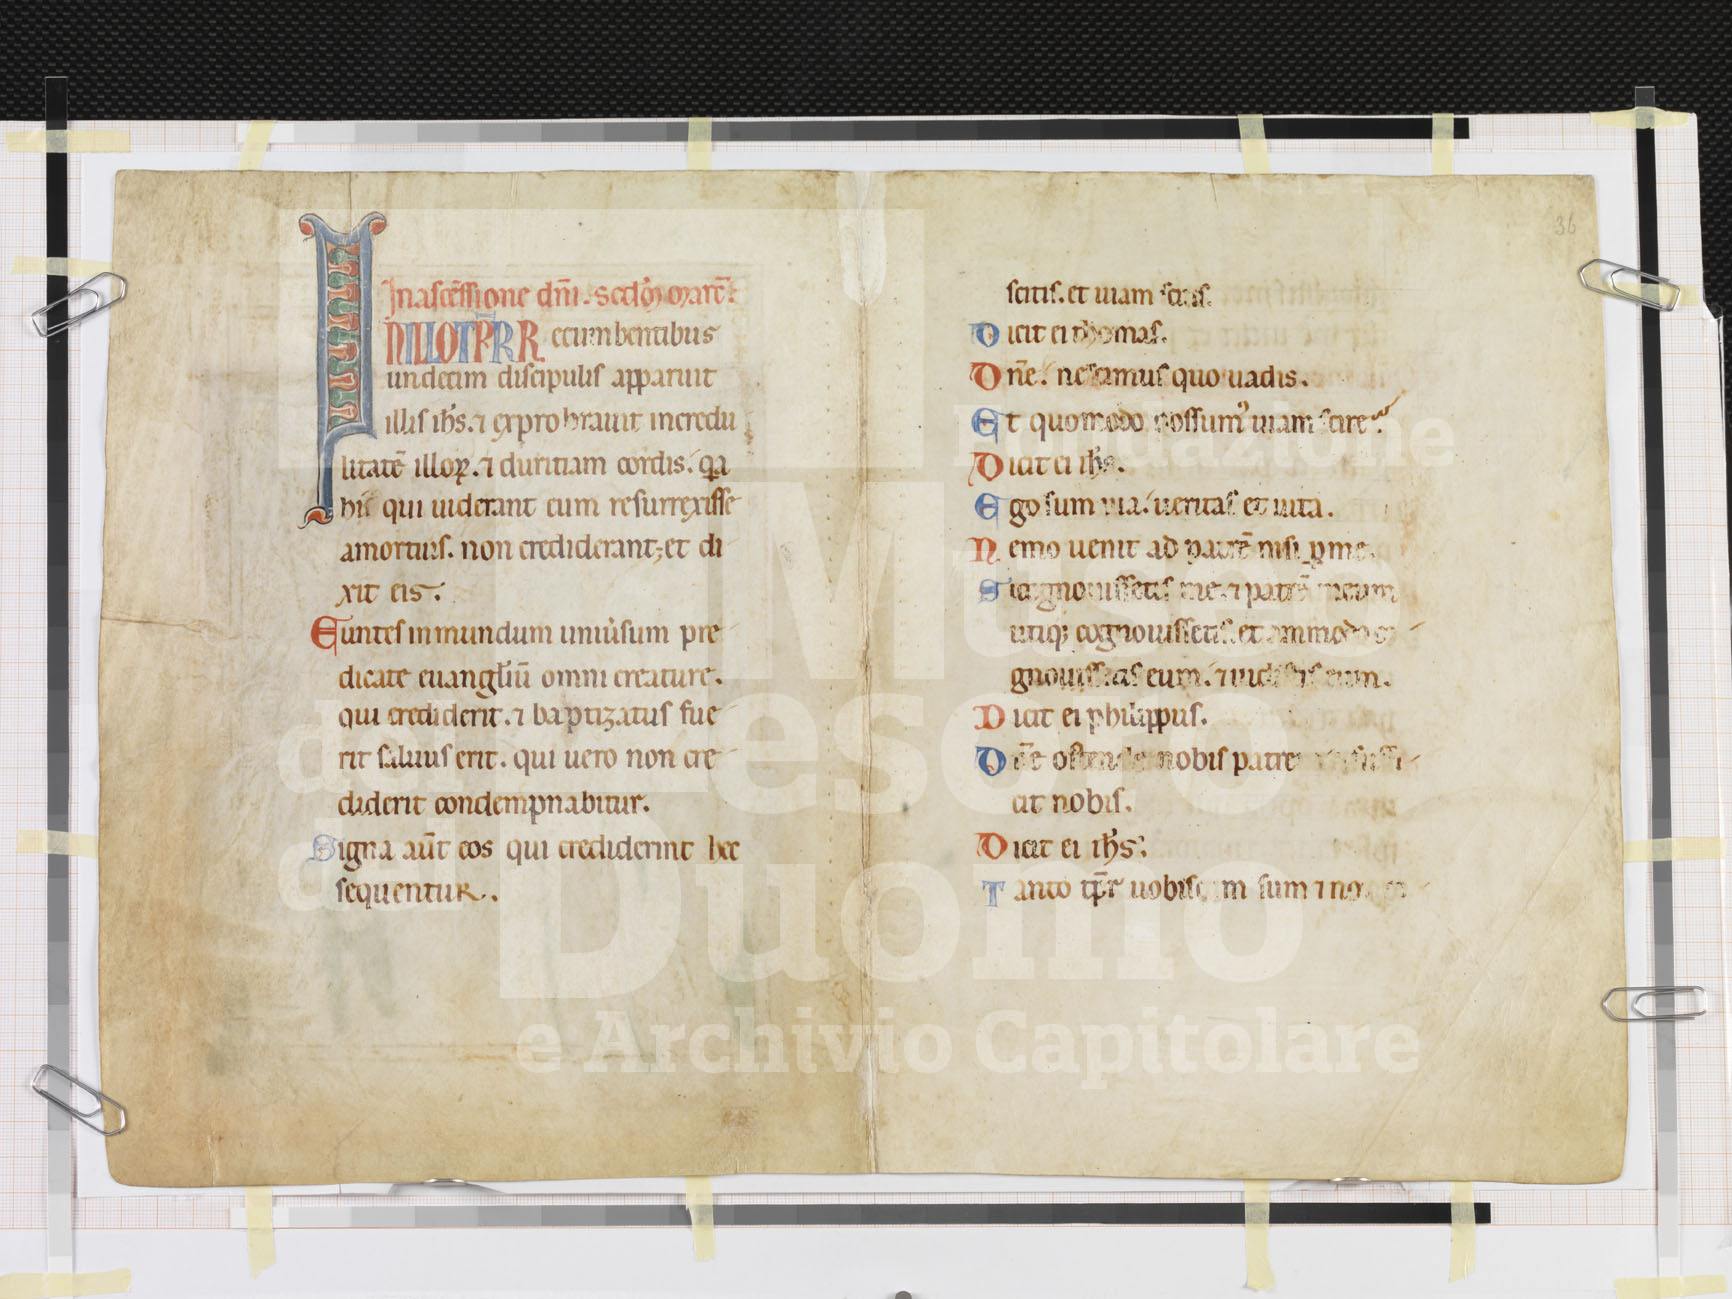 In ascēssione dn̄i. secd'm marc̄.
IN ILLO TP̄R R ecumbentibus
undecim discipulis apparuit
illis ih̄s. ⁊ exprobrauit incredu
litatē illoꝝ. ⁊ duritiam cordis. qa
his qui uiderant eum resurrexisse
amortuis. non crediderant; et di
xit eis.
Euntes in mundum uniu'sum pre
dicate euangl̄iū omni creature.
qui crediderit. ⁊ baptizatus fue
rit saluus erit. qui uero non cre
diderit condempnabitur.
Signa aūt eos qui crediderint hec
sequentur.
36
scitis. et uiam scitis.
Dicit ei thomas.
Dn̄e. nescimus quo uadis.
Et quomodo possum' uiam scire?
Dicit ei ih̄s.
Ego sum uia. ueritas et uita.
Nemo uenit ad patrē nisi ꝑ me.
Si cognouissetis me. ⁊ patrē meum
utiqꝫ cognouissetis. et ammodo co
gnouissetis eum. ⁊ uidistis eum.
Dicit ei philippus.
Dn̄e ostende nobis patrem suffi
cit nobis.
Dicit ei ih̄s.
Tanto tp̄r uobiscum sum ⁊ no
Fondazione
Museo
del Tesoro
del Duomo
e Archivio Capitolare